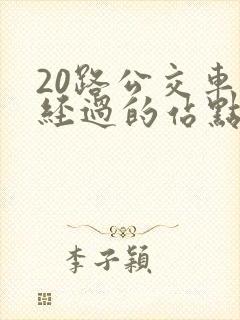 20路公交車
經過的佔點
李子穎